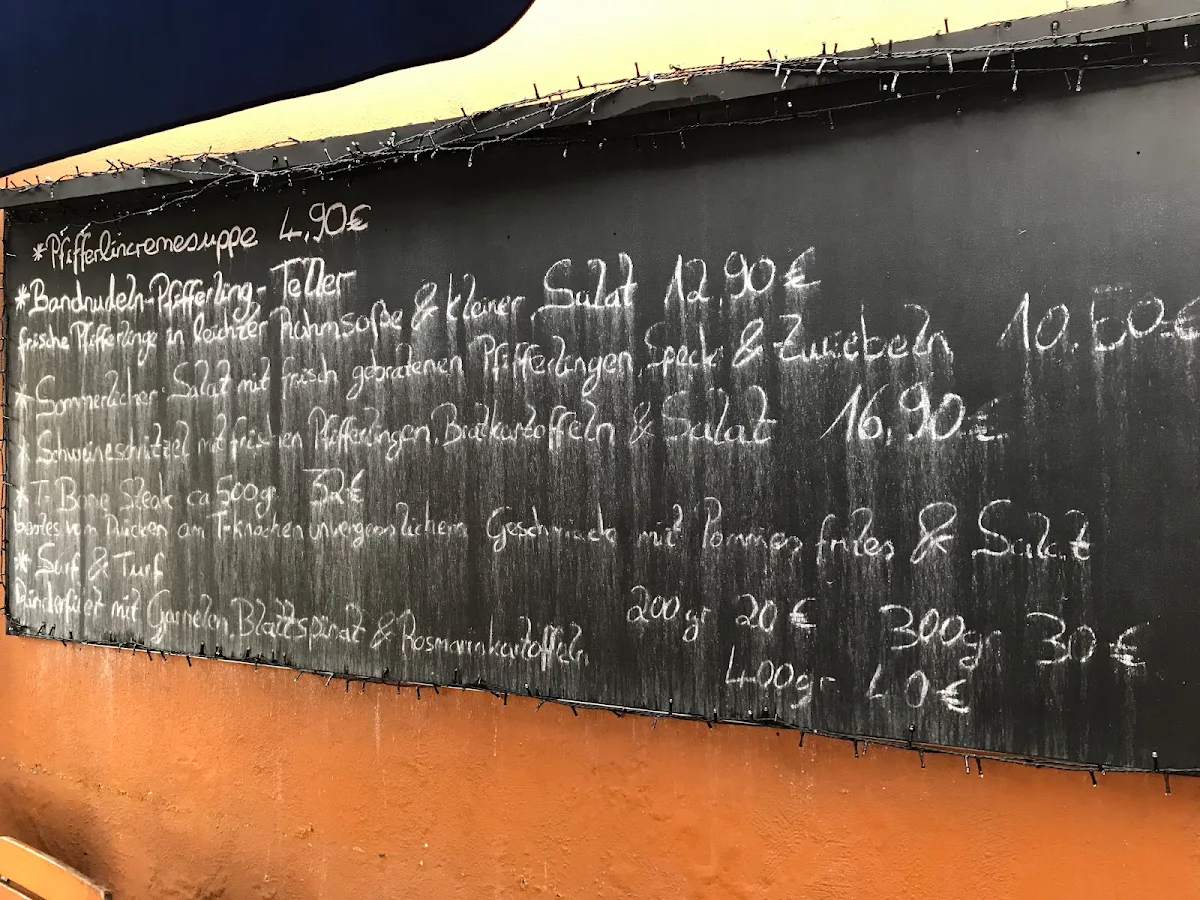 *Pfifferlincremesuppe 4,90€
*Bandnudeln-Pfifferling-Teller
frische Pfifferlinge in leichter Rahmsoße & kleiner Salat 12,90€
* Sommerlicher Salat mit frisch gebratenen Pfifferlingen, Speck & Zwiebeln 10,50€
* Schweineschnitzel mit frischen Pfifferlingen, Bratkartoffeln & Salat 16,90€
* T-Bone Steak ca 500gr 32€
bestes vom Rücken am T-Knochen unvergesslichem Geschmack mit Pommes frites & Salat
* Surf & Turf
Rinderfilet mit Garnelen, Blattspinat & Rosmarinkartoffeln 200gr 20€ 300gr 30€
400gr 40€